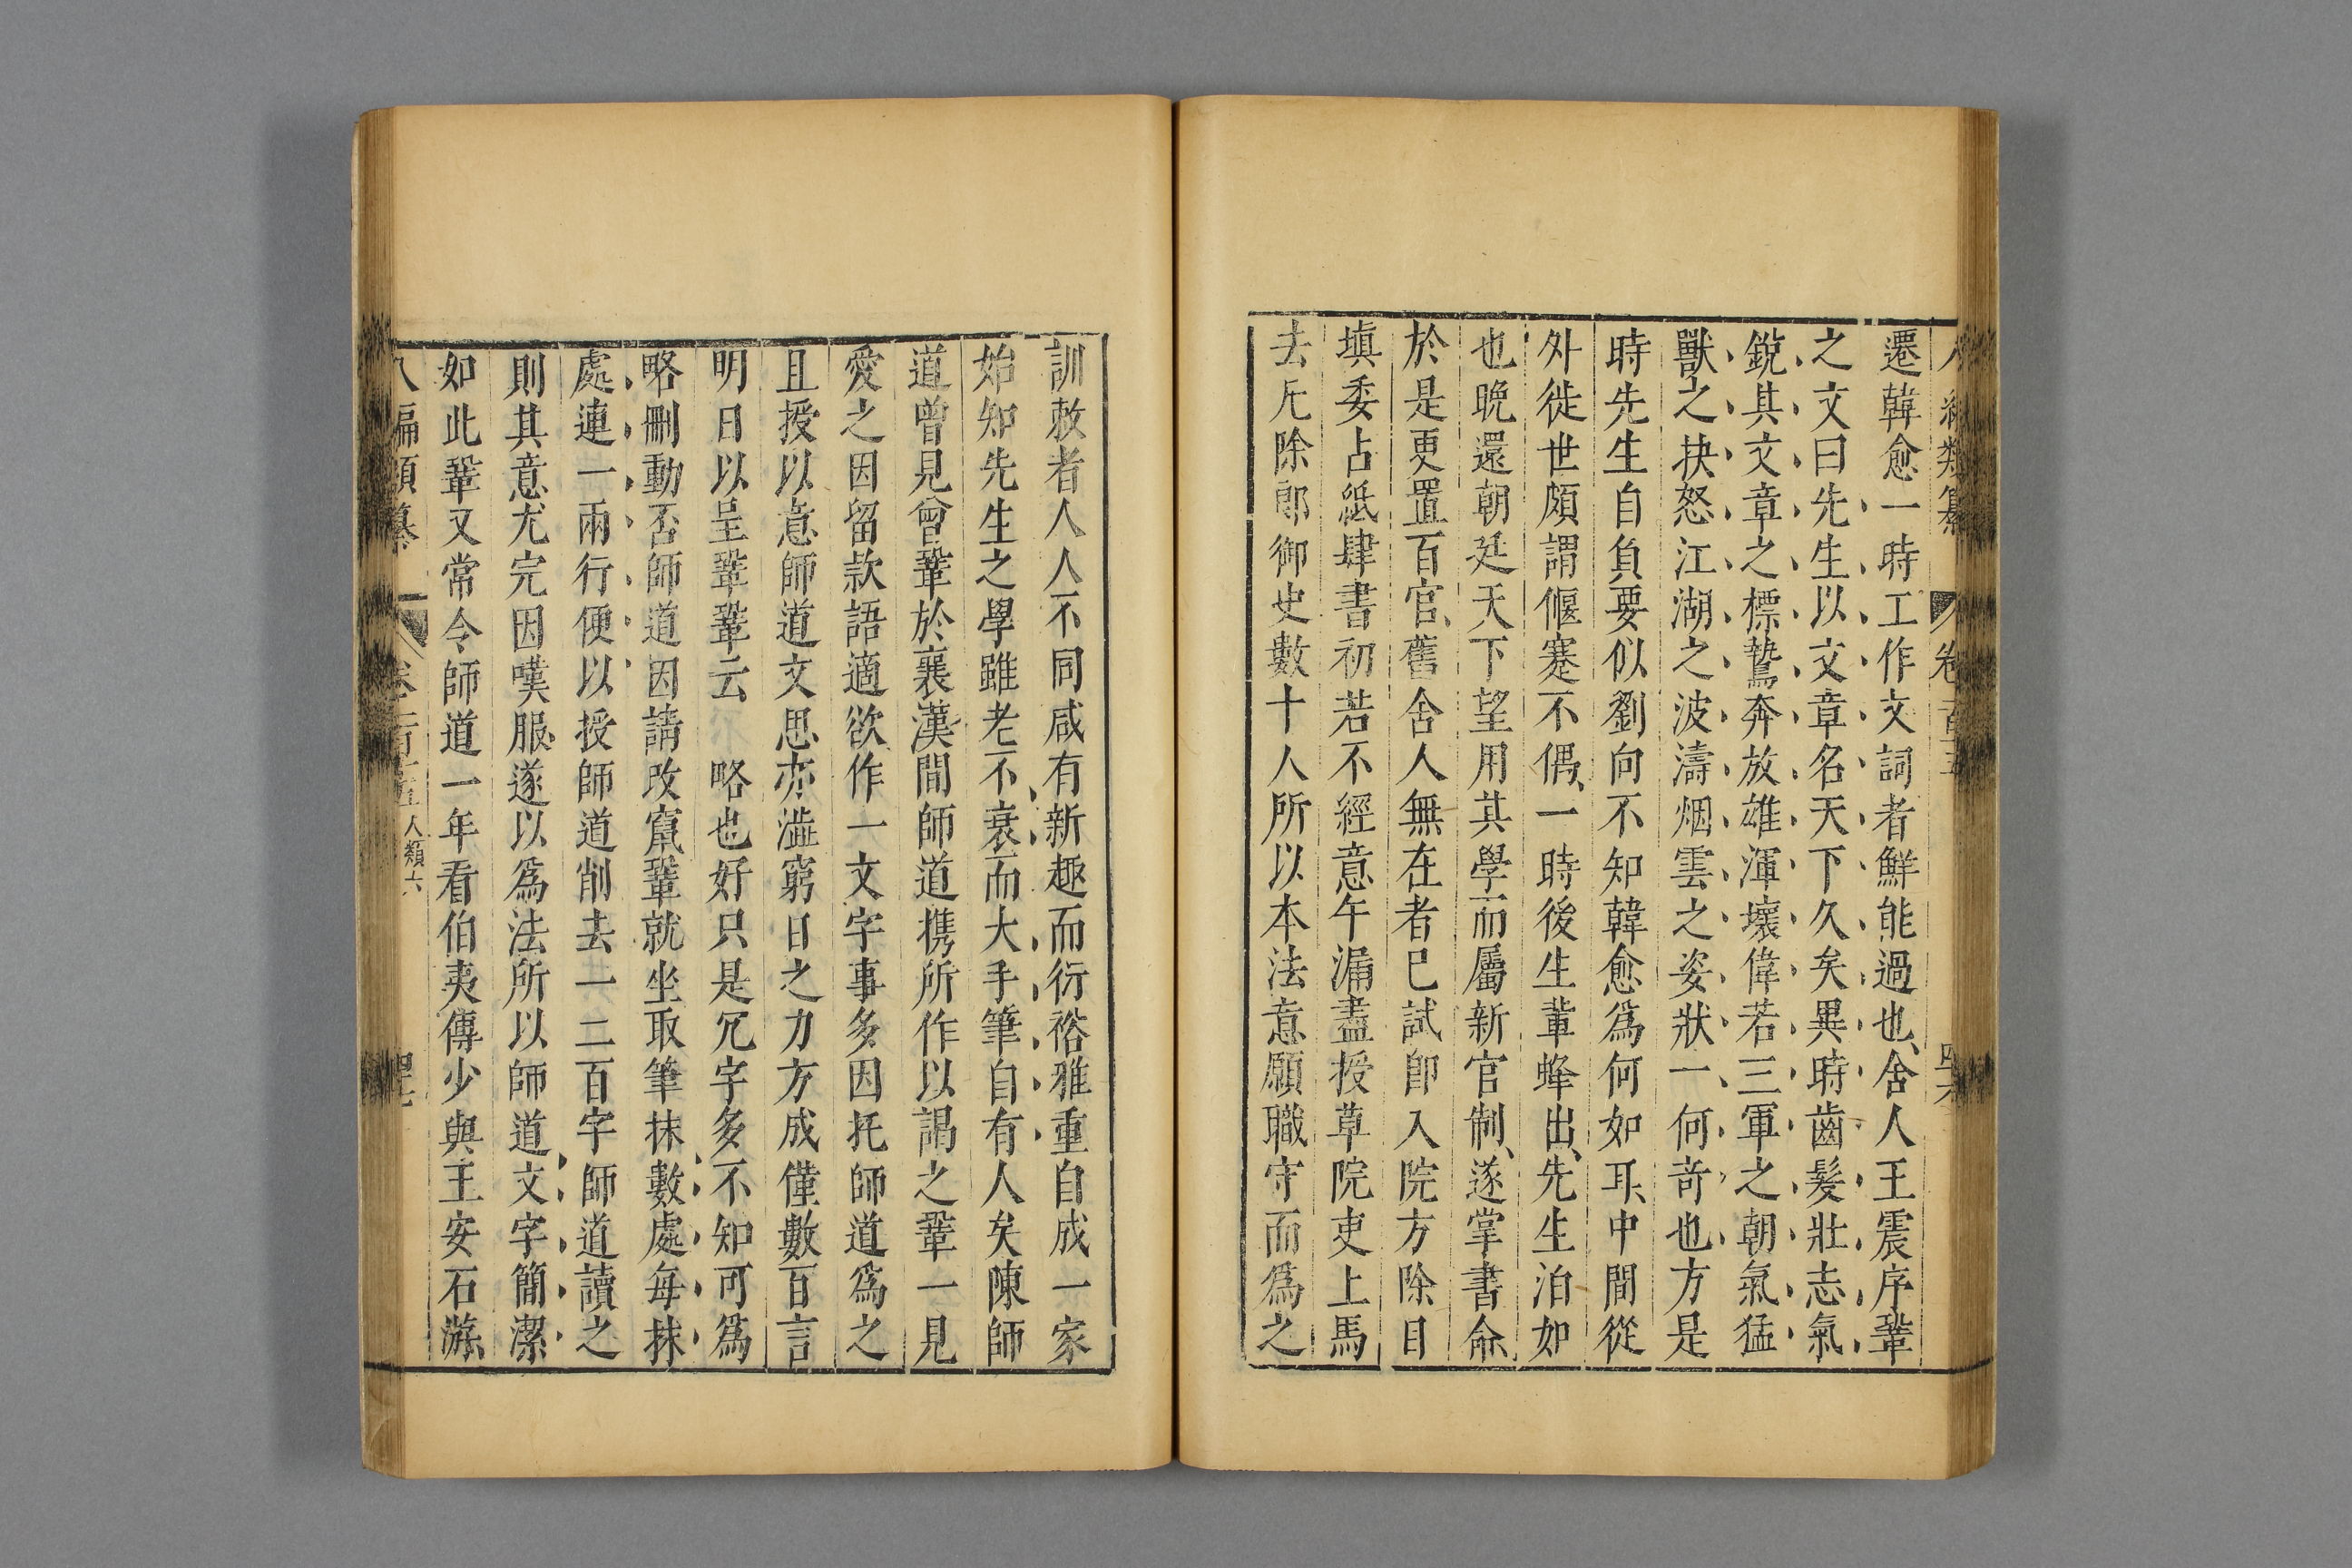 編類纂 卷一百十五 四十六
遷韓愈一時工作文詞者鮮能過也舍人王震序鞏
之文曰先生以文章名天下久矣異時齒髮壯志氣
銳其文章之標鷙奔放雄渾壞偉若三軍之朝氣猛
獸之抉怒江湖之波濤烟雲之姿狀一何奇也方是
時先生自負要似劉向不知韓愈爲何如耳中間從
外徙世頗謂偃蹇不偶一時後生輩蜂出先生泊如
也晚還朝廷天下望用其學而屬新官制遂掌書命
於是更置百官舊舍人無在者已試卽入院方除目
塡委占紙肆書初若不經意午漏盡授草院吏上馬
去凡除郎御史數十人所以本法意願職守而爲之
訓敕者人人不同咸有新趣而衍裕雅重自成一家
始知先生之學雖老不衰而大手筆自有人矣陳師
道曾見曾鞏於襄漢間師道携所作以謁之鞏一見
愛之因留款語適欲作一文字事多因托師道爲之
且授以意師道文思亦澁窮日之力方成僅數百言
明日以呈鞏鞏云 略也好只是冗字多不知可爲
略刪動否師道因請改竄鞏就坐取筆抹數處每抹
處連一兩行便以授師道削去一二百字師道讀之
則其意尤完因嘆服遂以爲法所以師道文字簡潔
如此鞏又常令師道一年看伯夷傳少與王安石游
八編類纂 卷一百十五 人類六 四十七